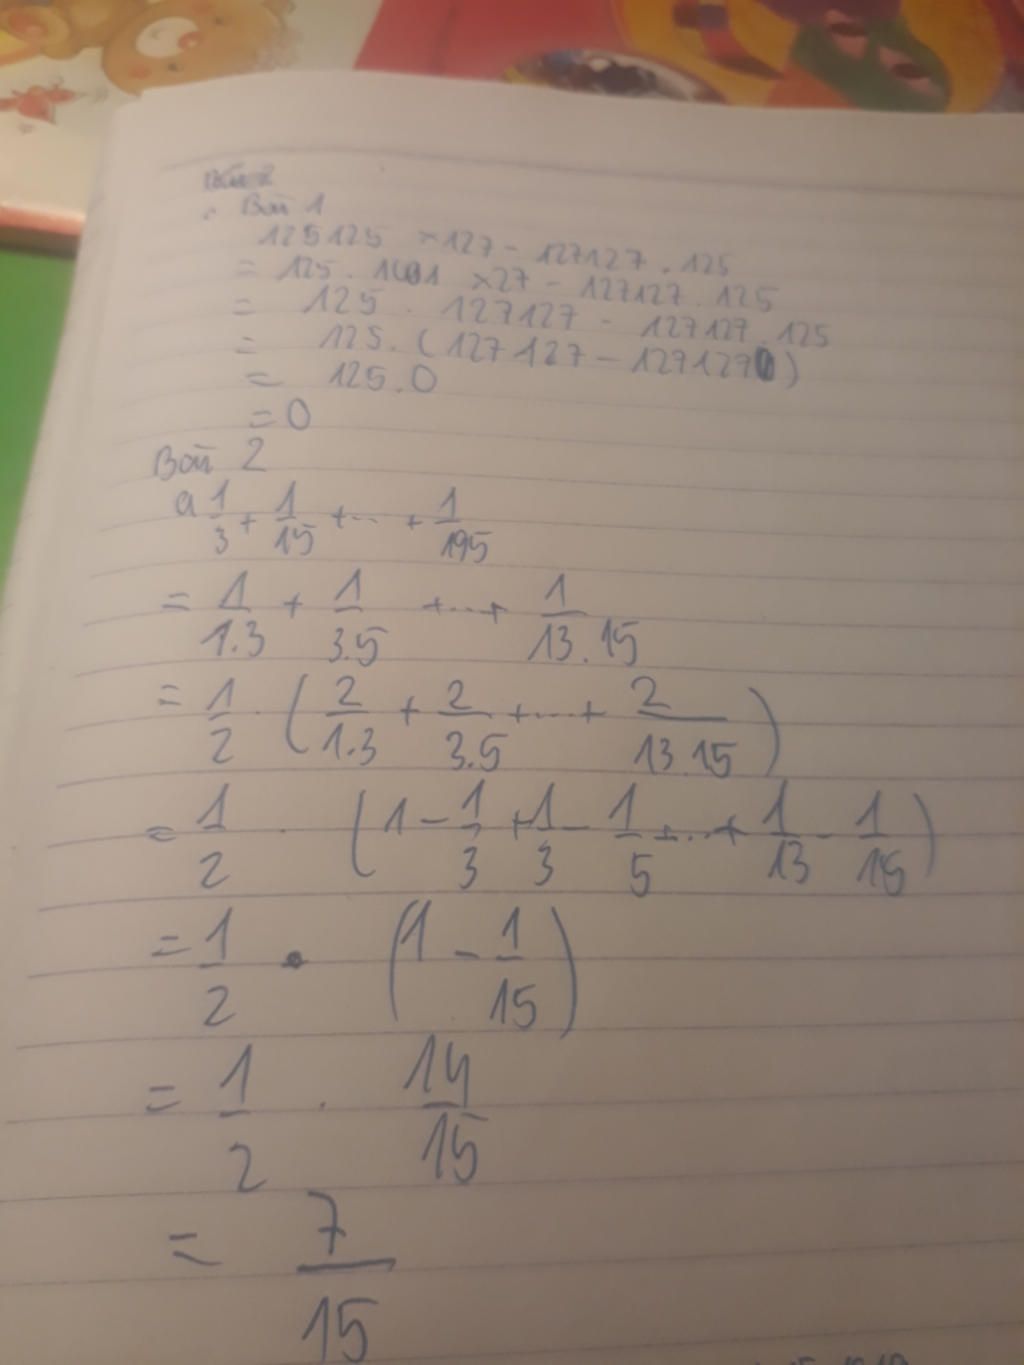 Bài 2
Bài 1
125125 × 127 - 127127 . 125
= 125 . 1001 × 27 - 127127 . 125
= 125 . 127127 - 127127 . 125
= 125 . ( 127127 - 127127 )
= 125 . 0
= 0
Bài 2
a 1/3 + 1/15 + ... + 1/195
= 1/1.3 + 1/3.5 + ... + 1/13.15
= 1/2 . ( 2/1.3 + 2/3.5 + ... + 2/13.15 )
= 1/2 . ( 1 - 1/3 + 1/3 - 1/5 + ... + 1/13 - 1/15 )
= 1/2 . ( 1 - 1/15 )
= 1/2 . 14/15
= 7/15